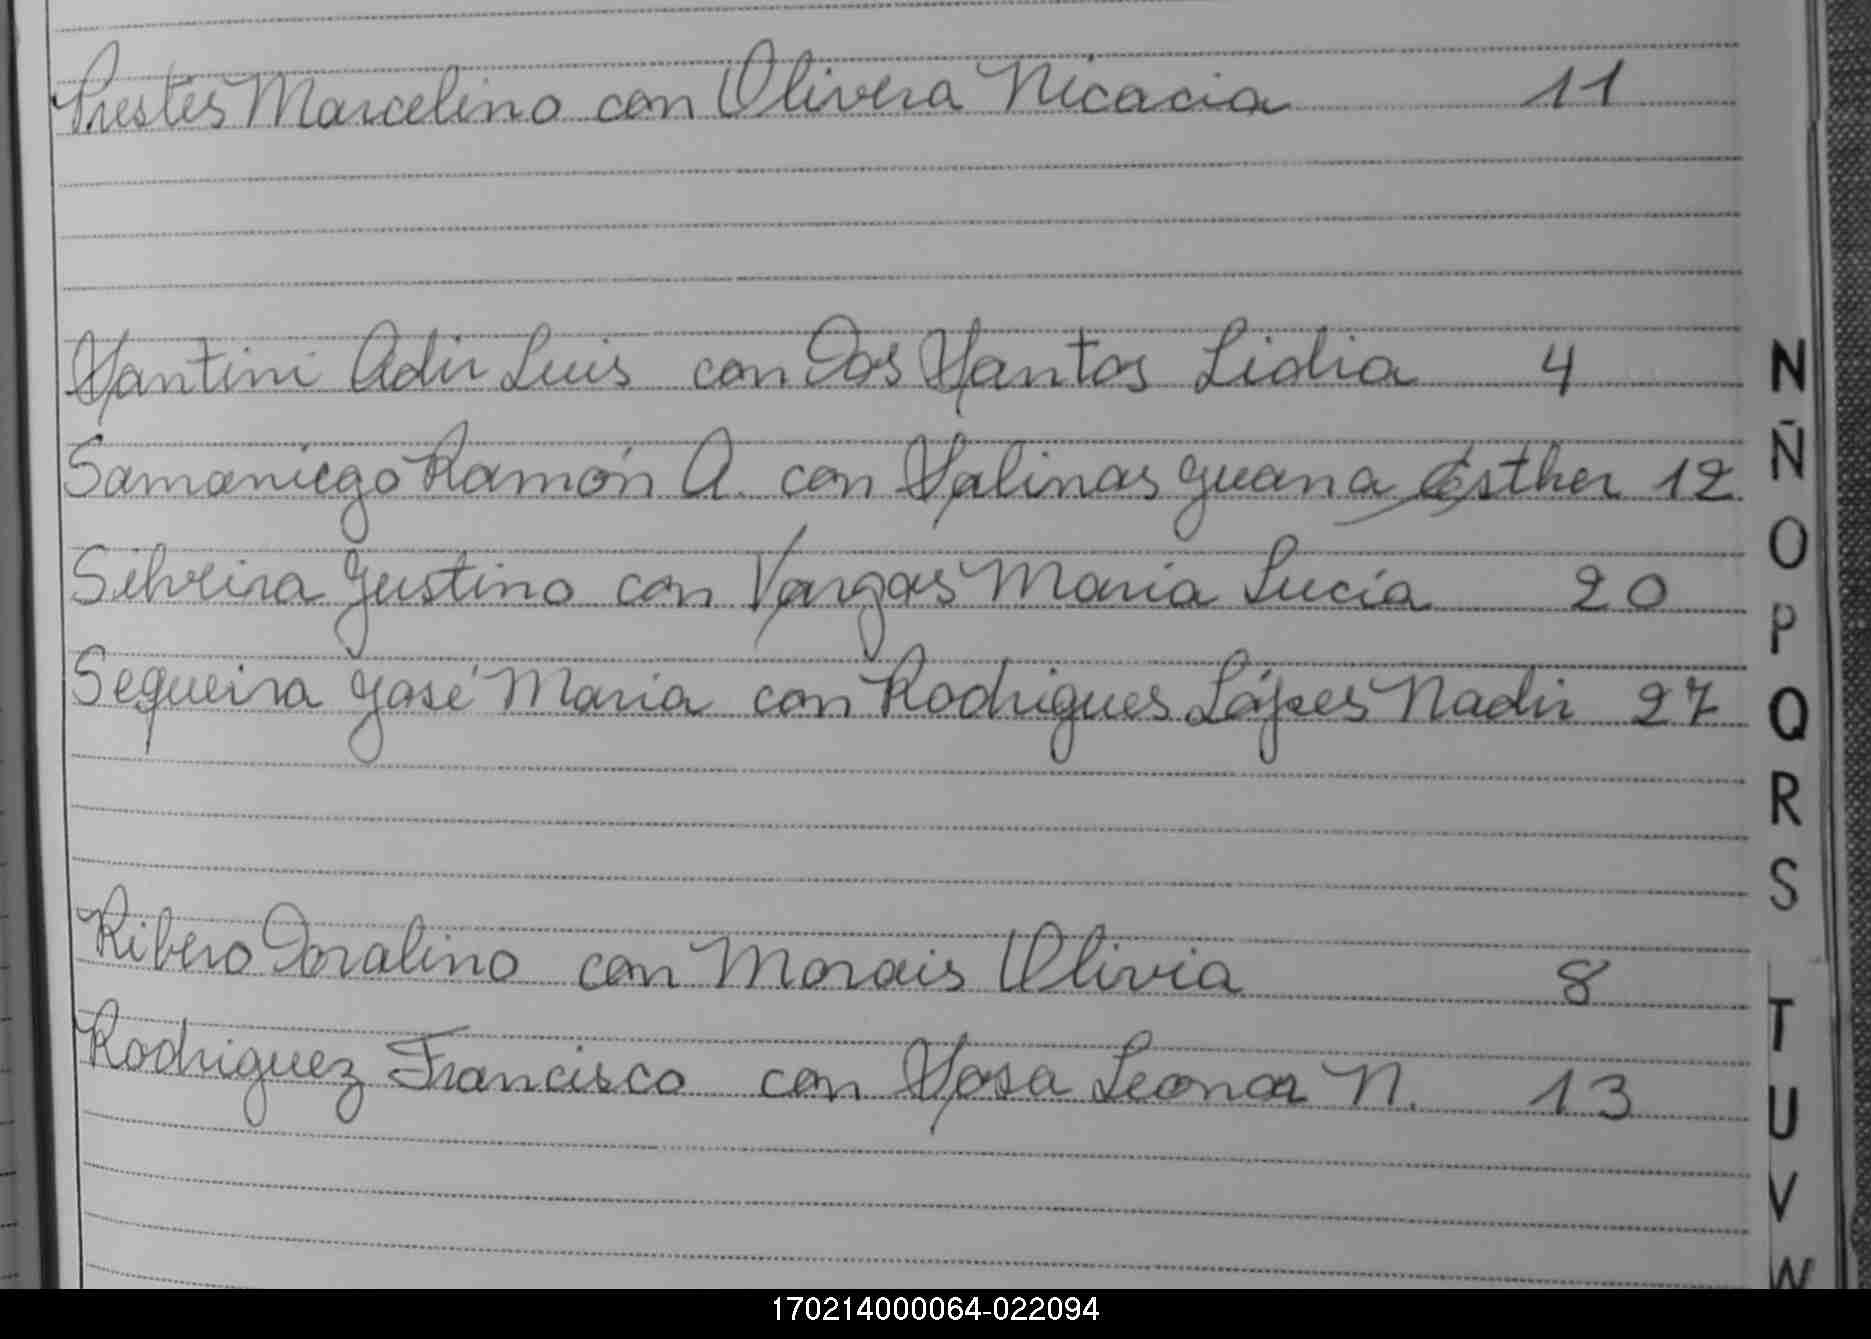 Prestes Marcelino con Olivera Nicacia 11
Santini Adir Luis con Dos Santos Lidia 4
Samaniego Ramón A. con Salinas Juana Esther 12
Silveira Justino con Vargas Maria Lucía 20
Sequeira José Maria con Rodrigues Lópes Nadir 27
Ribero Doralino con Morais Olivia 8
Rodriguez Francisco con Sosa Leonor N. 13
N
Ñ
O
P
Q
R
S
T
U
V
W
170214000064-022094